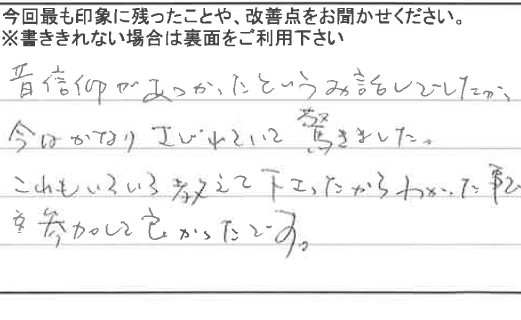 今回最も印象に残ったことや、改善点をお聞かせください。
※書ききれない場合は裏面をご利用下さい
昔信仰があつかったというお話しでしたが、
今はかなりさびれていて驚きました。
これもいろいろ教えて下さったからわかった事で
参加して良かったです。